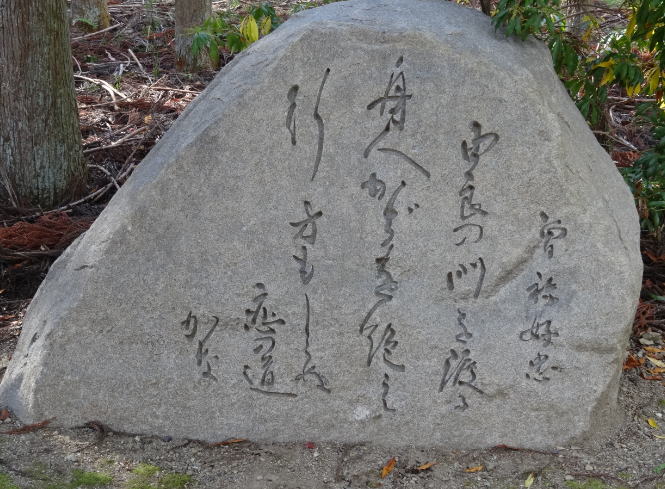 曽祢好忠
由良の門を渡る
舟人かぢを絶え
行方もしらぬ
恋の道
かな